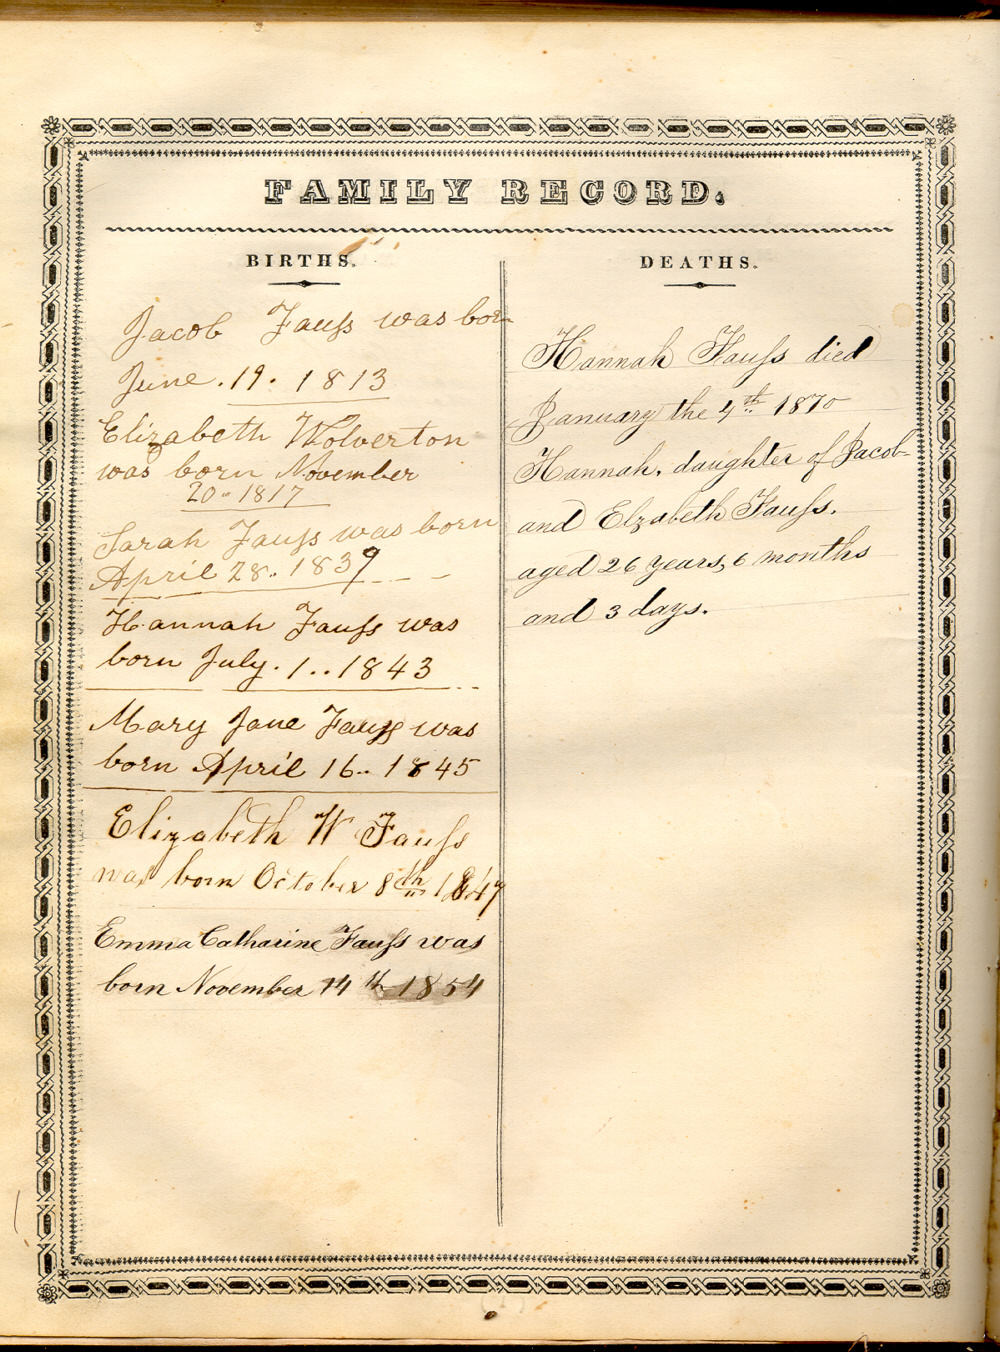 FAMILY RECORD.
BIRTHS.
Jacob Fauſs was born
June. 19. 1813
Elizabeth Wolverton
was born November
20. 1817
Sarah Fauſs was born
April 28. 1839
Hannah Fauſs was
born July. 1.. 1843
Mary Jane Fauſs was
born April 16.. 1845
Elizabeth W Fauſs
was born October 8th 1847
Emma Catharine Fauſs was
born November 14th 1854
DEATHS.
Hannah Fauſs died
January the 4th 1870
Hannah, daughter of Jacob
and Elzabeth Fauſs.
aged 26 years, 6 months
and 3 days.